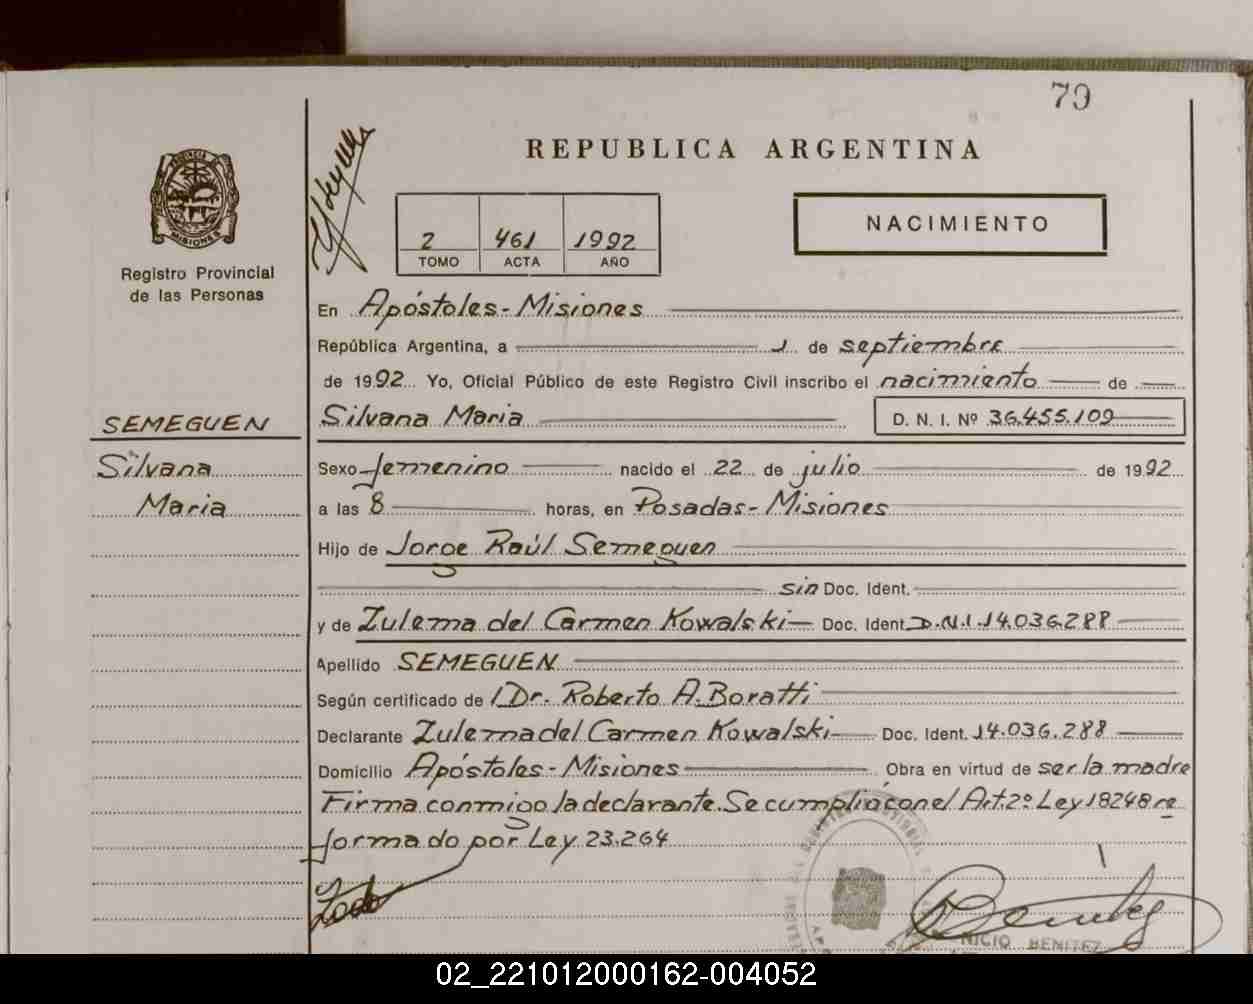 79
REPUBLICA ARGENTINA
PROVINCIA DE MISIONES
Registro Provincial
de las Personas
2 461 1992
TOMO ACTA AÑO
NACIMIENTO
En Apóstoles - Misiones
República Argentina, a 1 de septiembre
de 1992 Yo, Oficial Público de este Registro Civil inscribo el nacimiento de
SEMEGUEN
Silvana Maria D. N. I. Nº 36.455.109
Silvana
Maria
Sexo femenino nacido el 22 de julio de 1992
a las 8 horas, en Posadas - Misiones
Hijo de Jorge Raúl Semeguen
sin Doc. Ident.
y de Zulema del Carmen Kowalski Doc. Ident. D.N.I. 14.036.288
Apellido SEMEGUEN
Según certificado de Dr. Roberto A. Boratti
Declarante Zulema del Carmen Kowalski Doc. Ident. 14.036.288
Domicilio Apóstoles - Misiones Obra en virtud de ser la madre
Firma conmigo la declarante. Se cumplió con el Art. 2º Ley 18248 re
formado por Ley 23.264
NICIO BENITEZ
02_221012000162-004052